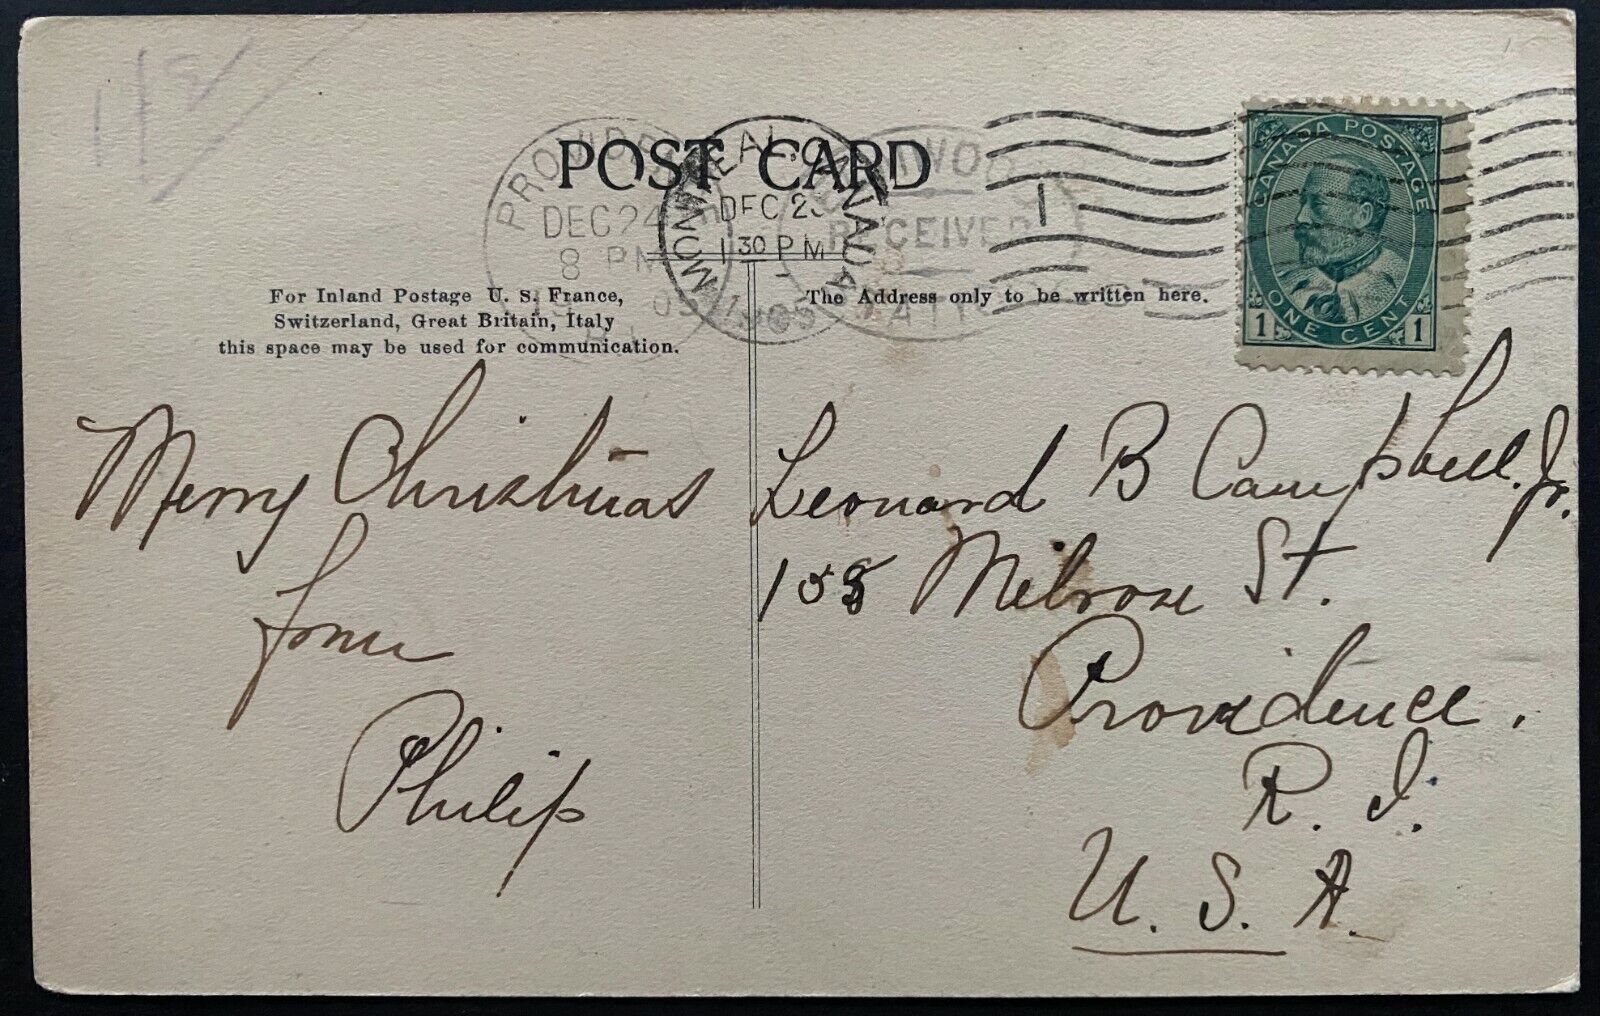 POST CARD
MONTREAL, CANADA
DEC 23
1 30 PM
1905
DEC 24
8 PM
RECEIVED
1
CANADA POSTAGE
1 ONE CENT 1
For Inland Postage U. S. France,
Switzerland, Great Britain, Italy
this space may be used for communication.
The Address only to be written here.
Merry Christmas
from
Philip
Leonard B Campbell. Jr.
Melrose St.
Providence.
R. I.
U. S. A.